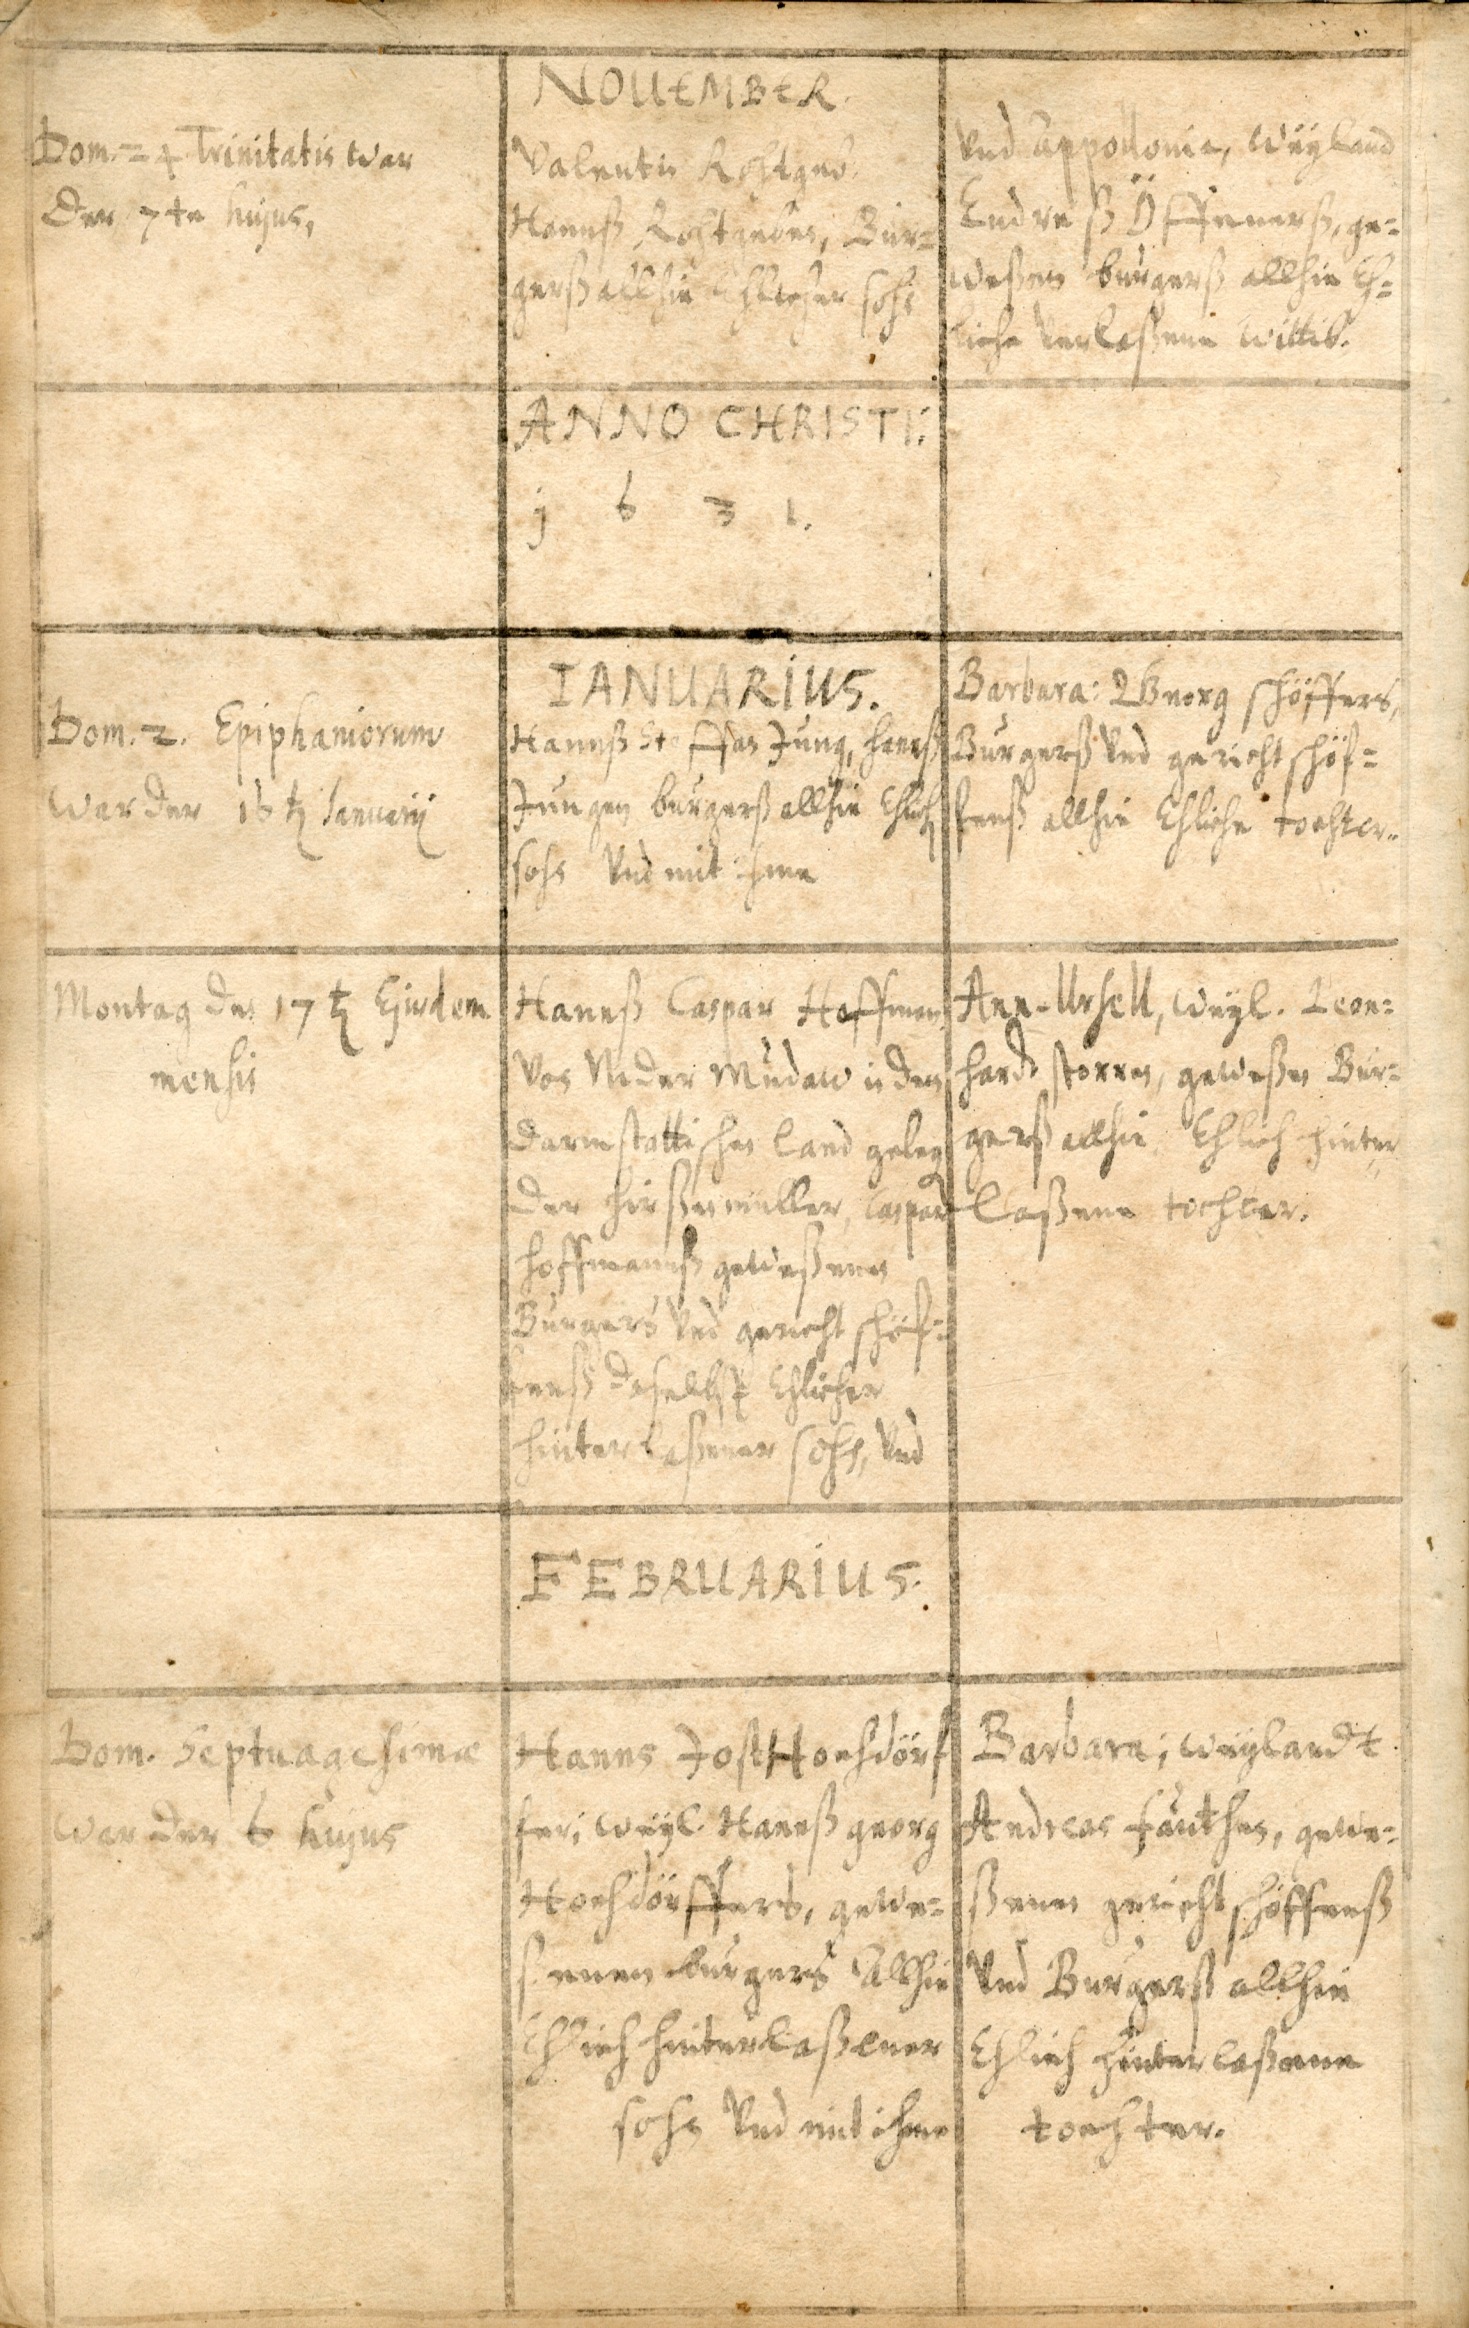 NOUEMBER.
Dom. 24 Trinitatis war
der 7te hujus,
Valentin
Hannß Bur=
gerß allhie Ehlicher sohn
Und Appollonia, Weyland
Endreß Öffnerß, ge=
weßen burgerß allhie Eh=
liche verlaßene Wittib.
ANNO CHRISTI:
j 6 3 1.
IANUARIUS.
Dom. 2. Epiphaniorum
war der 16 Januarij
Hannß Steffan Jung, Hannß
Jungen burgerß allhie Ehlich
sohn Und mit ihme
Barbara: Georg schöffers,
Burgerß Und gericht schöf=
fenß allhie Ehliche tochter.
Montag den 17 Ejusdem
mensis
Hannß Caspar Hoffman
Von Nider Mudaw in dem
Darmstattischen Land geleg
der hirßenmüller, Caspar
hoffmannß geweßenen
Burgers Und gericht schöf=
fenß daselbst Ehlicher
hinterlaßener sohn, Und
Ann-Ursell, weyl. Leon=
hardt storren, geweßen Bur=
gerß allhie Ehlich hinter
laßene tochter.
FEBRUARIUS.
Dom. Septuagesimæ
war der 6 hujus
Hanns Jost Hochdörf
fer; weyl. Hannß georg
Hochdörffers, gewe=
senen burgers Allhie
Ehlich hinterlaßener
sohn Und mit ihme
Barbara; weylandt
Andreas fauthen, gewe=
ßenen gericht schöffenß
Und Burgerß allhie
Ehlich hinterlaßene
tochter.